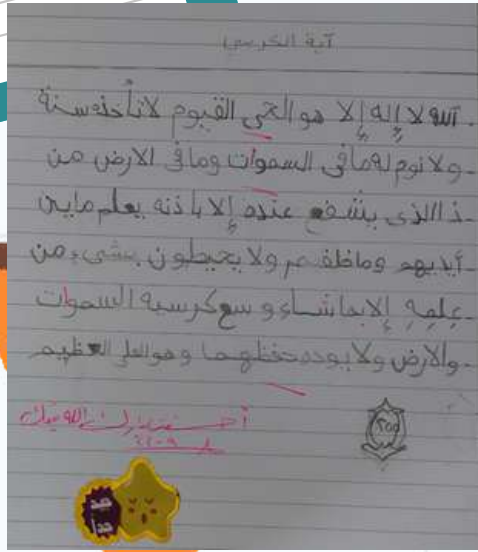 آية الكرسي
. الله لا إله إلا هو الحي القيوم لا تأخذه سنة
. ولا نوم له ما في السموات وما في الارض من
. ذا الذي يشفع عنده إلا باذنه يعلم ما بين
. أيديهم وما خلفهم ولا يحيطون بشيء من
. علمه إلا بما شاء وسع كرسيه السموات
. والارض ولا يوده حفظهما وهو العلي العظيم
٢٥٥
أحسنت بارك الله فيك
جيد
جداً